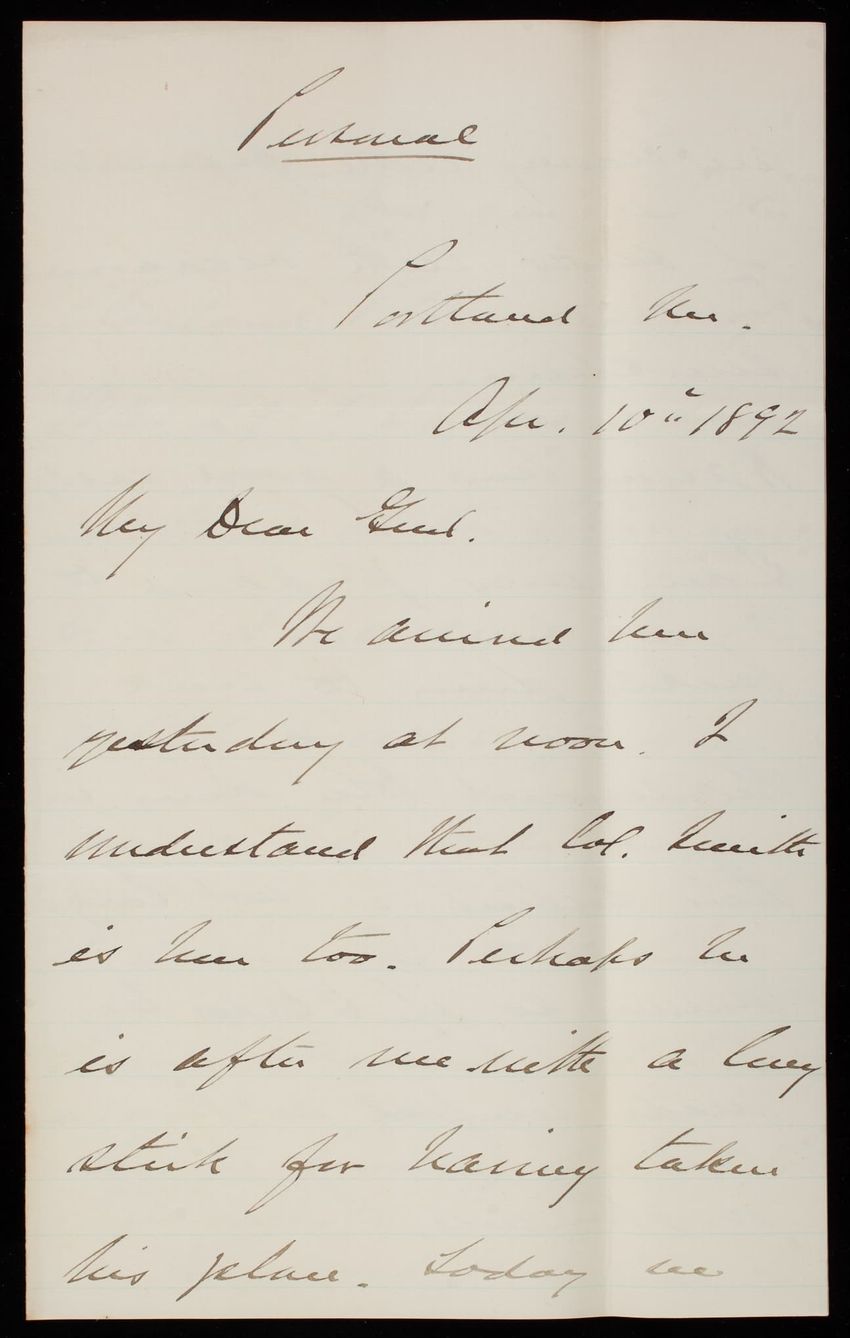 Personal
Portland Me.
Apr. 10th 1892
My Dear Genl.
We arrived here
yesterday at noon. I
understand that Col. Smith
is here too. Perhaps he
is after me with a long
stick for having taken
his place. Today we